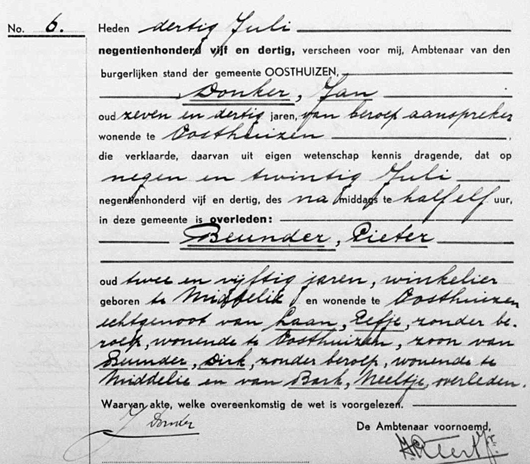 No. 6. Heden dertig Juli
negentienhonderd vijf en dertig, verscheen voor mij, Ambtenaar van den
burgerlijken stand der gemeente OOSTHUIZEN,
Donker, Jan
oud zeven en dertig jaren, van beroep aanspreker
wonende te Oosthuizen
die verklaarde, daarvan uit eigen wetenschap kennis dragende, dat op
negen en twintig Juli
negentienhonderd vijf en dertig, des namiddags te half elf uur,
in deze gemeente is overleden:
Beunder, Pieter
oud twee en vijftig jaren, winkelier
geboren te Middelie en wonende te Oosthuizen
echtgenoot van Laan, Eefje, zonder be-
roep, wonende te Oosthuizen, zoon van
Beunder, Dirk, zonder beroep, wonende te
Middelie en van Bark, Neeltje, overleden.
Waarvan akte, welke overeenkomstig de wet is voorgelezen.
J Donker
De Ambtenaar voornoemd,